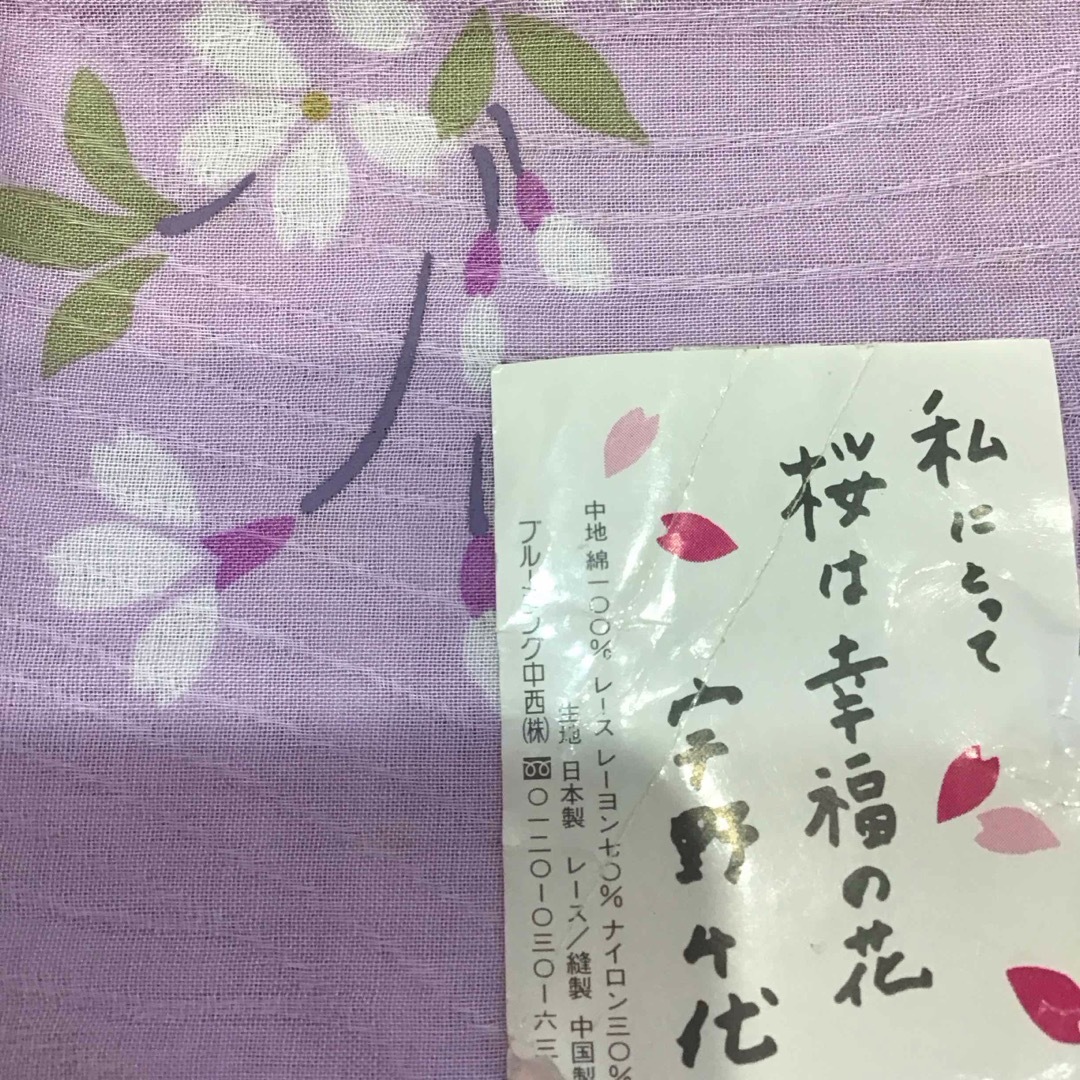 私にとって
桜は幸福の花
宇野千代
中地 綿一〇〇% レース レーヨン七〇% ナイロン三〇%
生地 日本製 レース/縫製 中国製
ブルーミング中西(株) 〇一二〇-〇三〇-六三